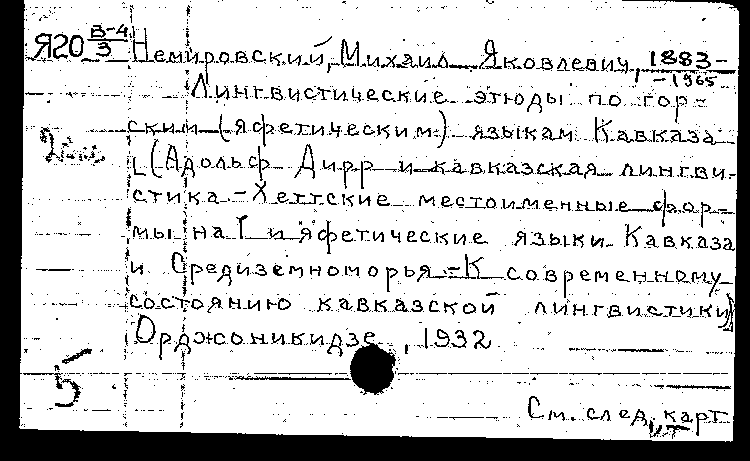 Я20 В-4/3 Немировский, Михаил Яковлевич, 1883-
-1965
Лингвистические этюды по гор-
ским (яфетическим) языкам Кавказа
(Адольф Дирр и кавказская лингви-
стика - Хеттские местоименные фор-
мы на Т и яфетические языки Кавказа
и Средиземноморья - К современному
состоянию кавказской лингвистики)
Орджоникидзе, 1932
5
См. след. карт